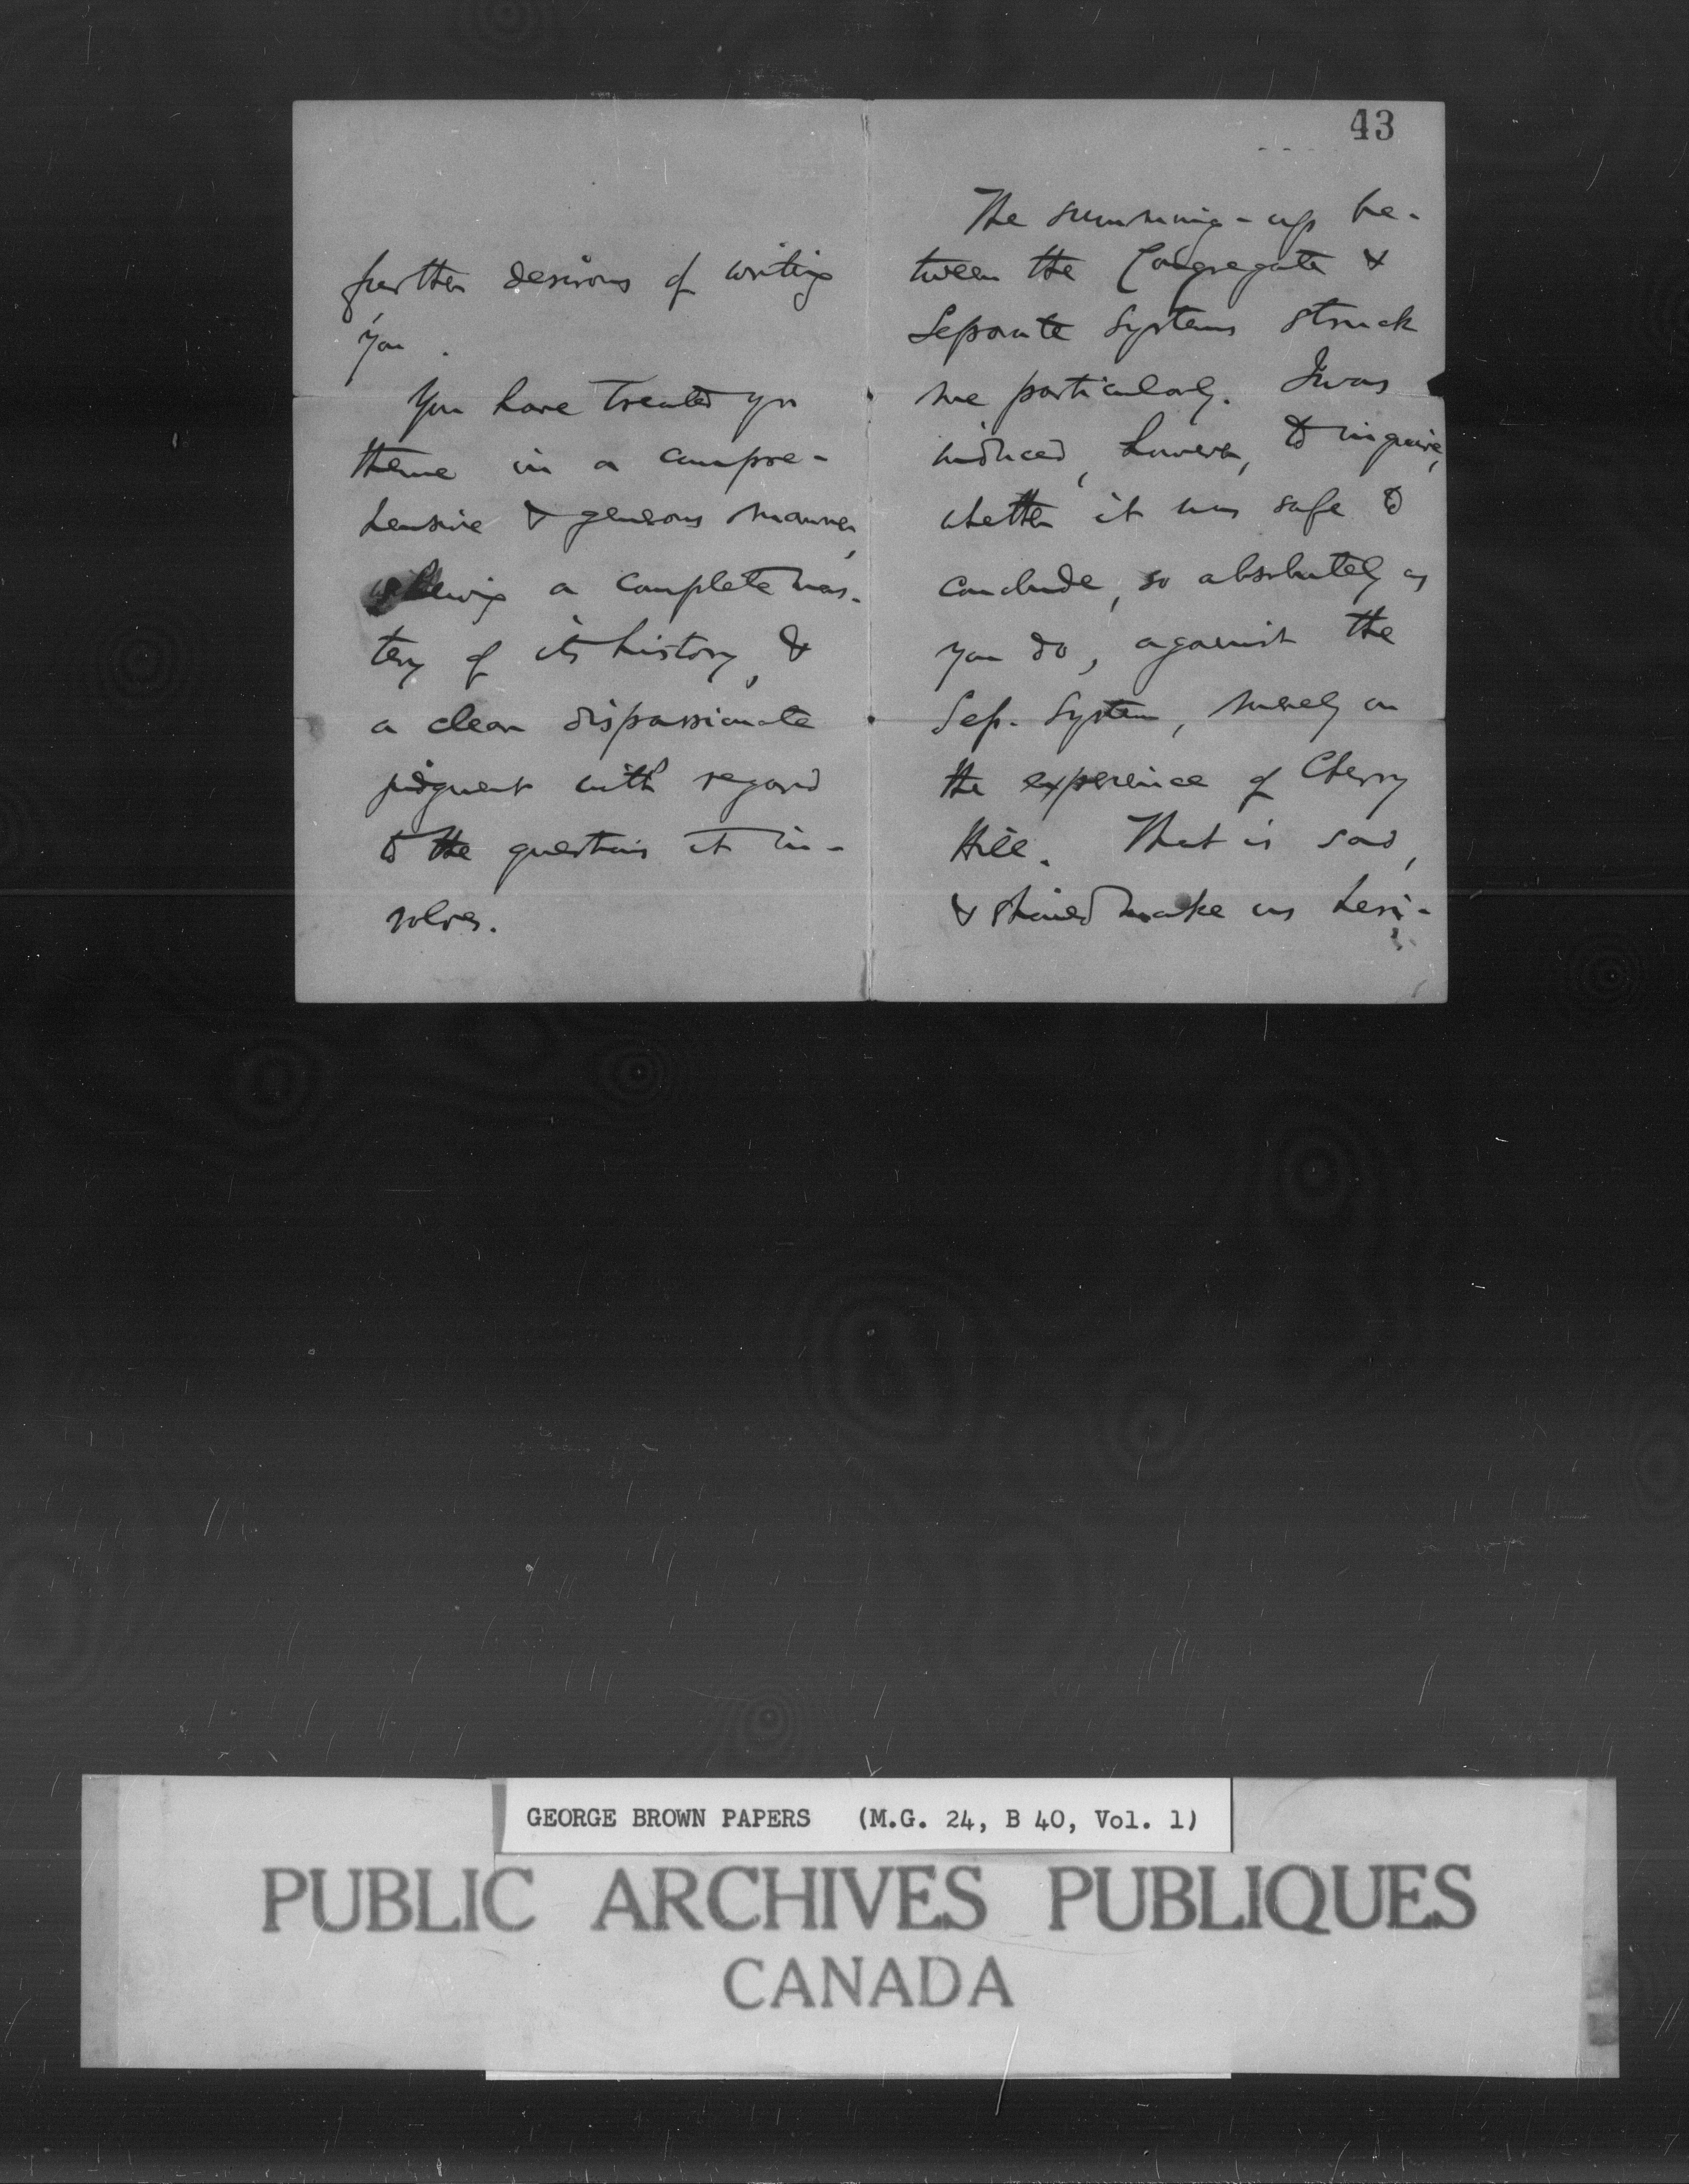 further desirous of writing
you.
You have treated yr
theme in a compre-
hensive & generous manner,
shewing a complete mas-
tery of its history, &
a clear dispassionate
judgment with regard
to the questions it in-
volves.
43
The summing-up be-
tween the Congregate &
Separate Systems struck
me particularly. I was
induced, however, to inquire,
whether it was safe to
conclude, so absolutely as
you do, against the
Sep. System, merely on
the experience of Cherry
Hill. That is sad,
& should make us hesi-
GEORGE BROWN PAPERS (M.G. 24, B 40, Vol. 1)
PUBLIC ARCHIVES PUBLIQUES
CANADA